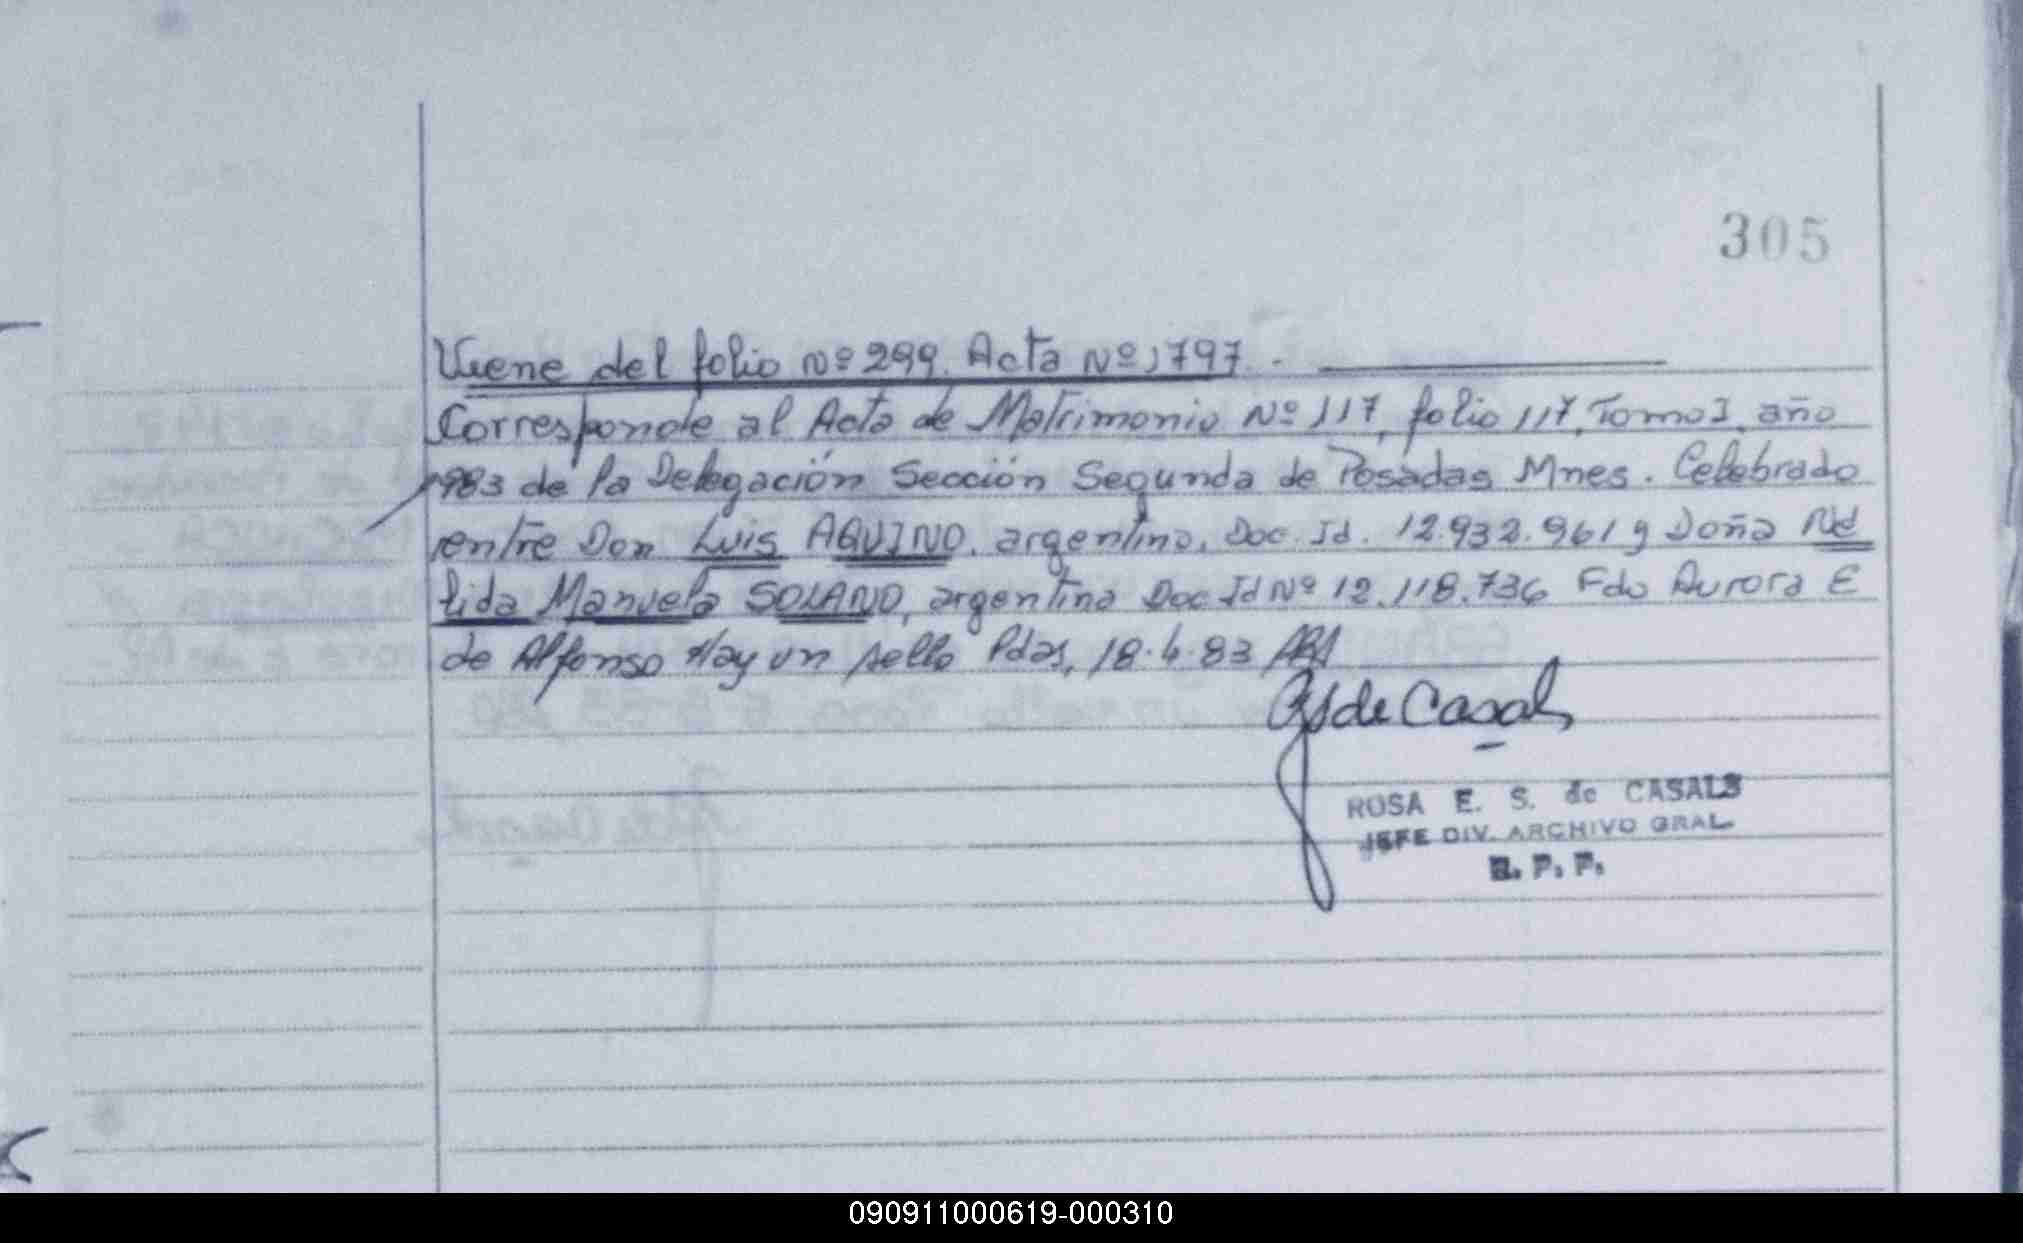 305
Viene del folio Nº 299. Acta Nº 1797. -
Corresponde al Acta de Matrimonio Nº 117, folio 117, Tomo I, año
1983 de la Delegación Sección Segunda de Posadas Mnes. Celebrado
entre Don Luis AQUINO, argentino, Doc. Id. 12.932.961 y Doña Né
lida Manuela SOLANO, argentina Doc Id Nº 12.118.736 Fdo Aurora E
de Alfonso Hay un sello Pdas, 18.4.83
de Casals
ROSA E. S. de CASALS
JEFE DIV. ARCHIVO GRAL.
R. P. P.
090911000619-000310